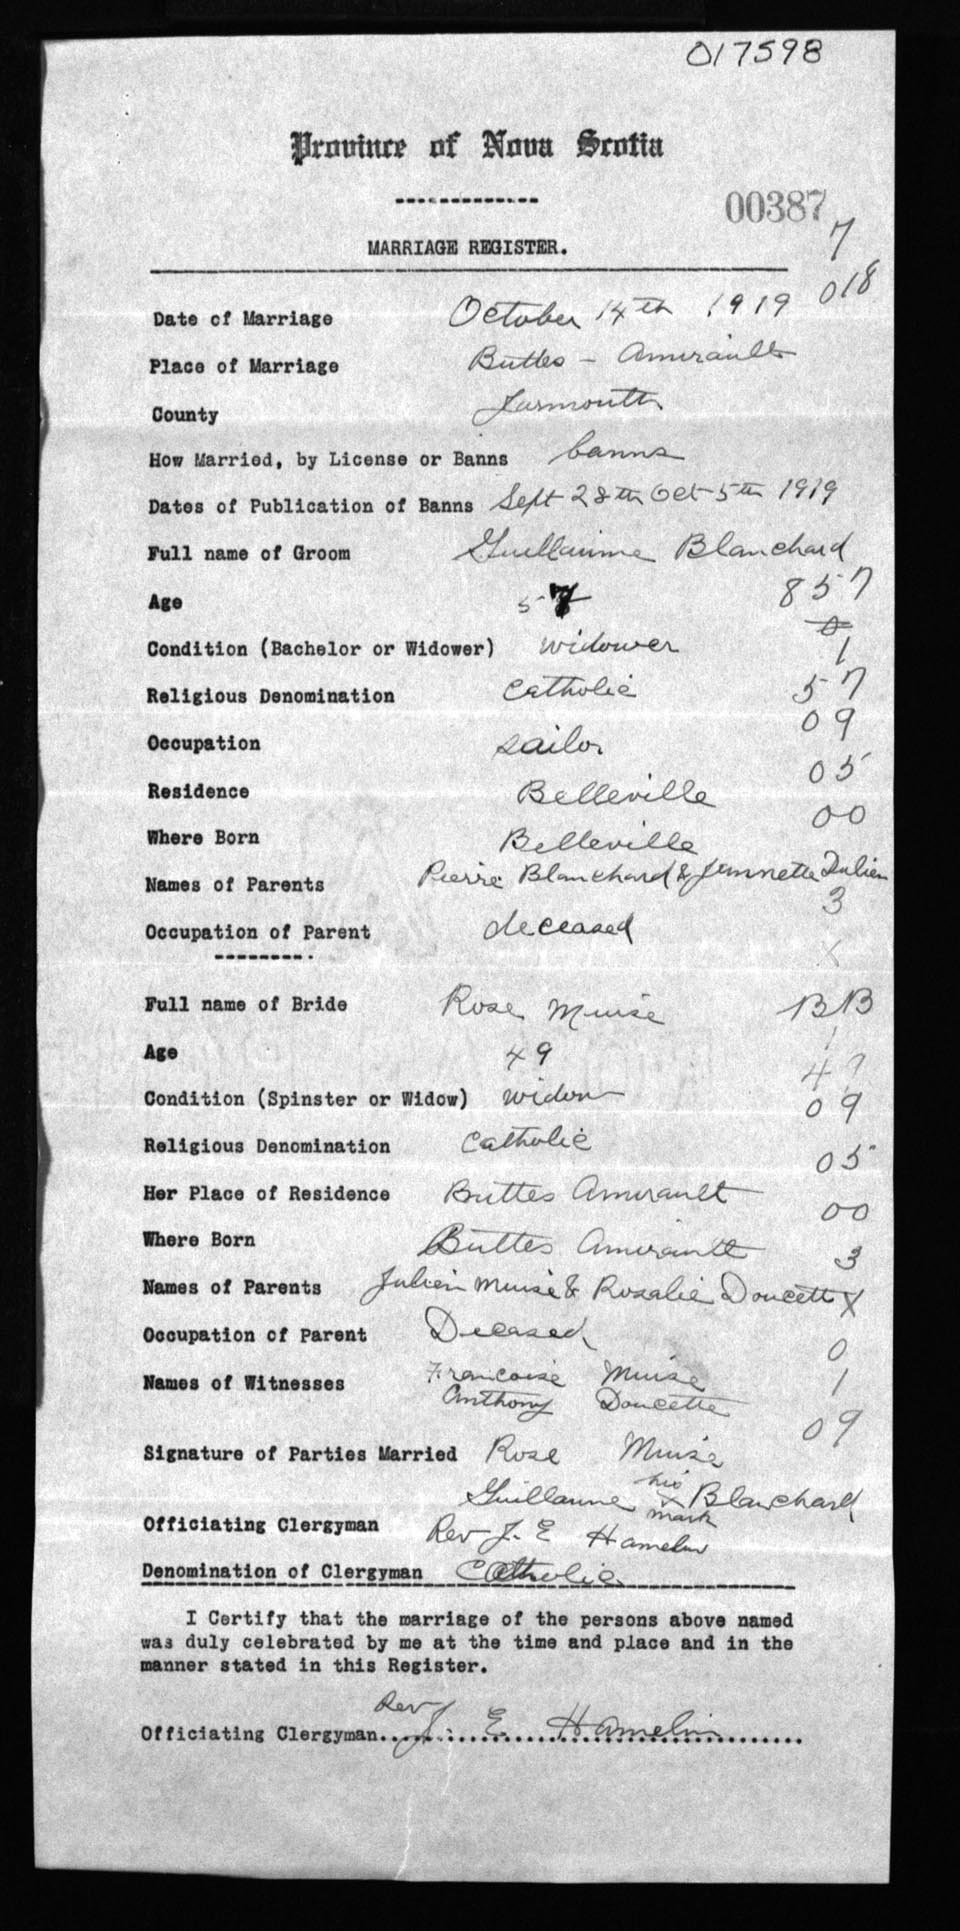 017598
Province of Nova Scotia
00387
7
MARRIAGE REGISTER.
018
Date of Marriage October 14th 1919
Place of Marriage Buttes - Amirault
County Yarmouth
How Married, by License or Banns banns
Dates of Publication of Banns Sept 28th Oct 5th 1919
Full name of Groom Guillaume Blanchard
Age 57 857
0
Condition (Bachelor or Widower) widower 1
Religious Denomination Catholic 57
09
Occupation sailor
05
Residence Belleville
00
Where Born Belleville
Names of Parents Pierre Blanchard & Jennette Dulien
3
Occupation of Parent deceased
X
Full name of Bride Rose Muise BB
1
Age 49 49
Condition (Spinster or Widow) widow 09
Religious Denomination Catholic
05
Her Place of Residence Buttes Amirault
00
Where Born Buttes Amirault 3
Names of Parents Julien Muise & Rosalie Doucette X
Occupation of Parent Deceased 0
Names of Witnesses Francoise Muise 1
Anthony Doucette
09
Signature of Parties Married Rose Muise
Guillaume his X mark Blanchard
Officiating Clergyman Rev J. E Hamelin
Denomination of Clergyman Catholic
I Certify that the marriage of the persons above named
was duly celebrated by me at the time and place and in the
manner stated in this Register.
Officiating Clergyman Rev J. E Hamelin